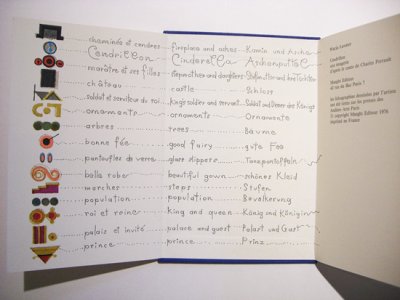 cheminée et cendres fireplace and ashes Kamin und Asche
Cendrillon Cinderella Aschenputtel
marâtre et ses filles stepmother and daughters Stiefmutter und ihre Töchter
château castle Schloss
soldat et serviteur du roi King's soldier and servant Soldat und Diener des Königs
ornements ornaments Ornamente
arbres trees Bäume
bonne fée good fairy gute Fee
pantoufles de verre glass slippers Tanzpantoffeln
belle robe beautiful gown schönes Kleid
marches steps Stufen
population population Bevölkerung
roi et reine king and queen König und Königin
palais et invité palace and guest Palast und Gast
prince prince Prinz
Warja Lavater
Cendrillon
une imagerie
d'après le conte de Charles Perrault
Maeght Editeur
Paris
les lithographies dessinées par l'artiste
ont été tirées sur les presses des
Ateliers Arte Paris
© copyright Maeght Editeur 1976
imprimé en France